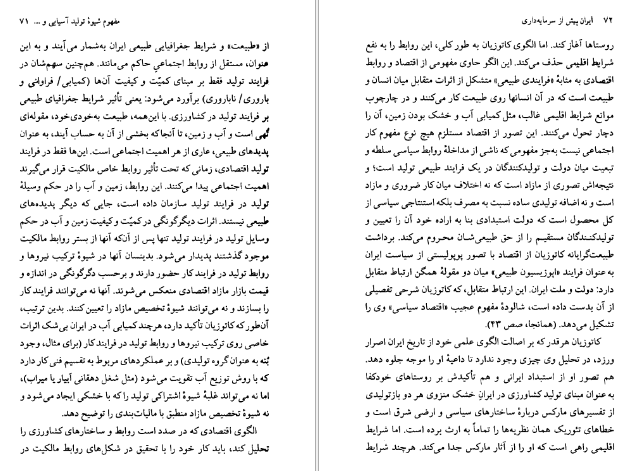 مفهوم شیوهٔ تولید آسیایی و ... ۷۱
از «طبیعت» و شرایط جغرافیایی طبیعی ایران به‌شمار می‌آیند و نه به این
عنوان، مستقل از روابط اجتماعی حاکم می‌مانند. هم‌چنین سهم‌شان در
فرایند تولید فقط بر مبنای کمیّت و کیفیت آن‌ها (کمیابی/ فراوانی و
باروری/ ناباروری) برآورد می‌شود: یعنی تأثیر شرایط جغرافیای طبیعی
بر فرایند تولید در کشاورزی. با این‌همه، طبیعت به‌خودی‌خود، مقوله‌ای
تُهی است و آب و زمین، تا آنجا‌که بخشی از آن به حساب آیند، به عنوان
پدیده‌های طبیعی، عاری از هر اهمیت اجتماعی است. این‌ها فقط در فرایند
تولید اقتصادی، زمانی که تحت روابط خاص مالکیت قرار می‌گیرند
اهمیت اجتماعی پیدا می‌کنند. این روابط، زمین و آب را در حکم وسیلهٔ
تولید در فرایند تولید سازمان داده است، جایی که دیگر پدیده‌های
طبیعی نیستند. اثرات دیگرگونگی در کمیّت و کیفیت زمین و آب در حکم
وسایل تولید در فرایند تولید تنها پس از آن‌که آنها از بستر روابط مالکیت
موجود گذشتند پدیدار می‌شود. بدینسان آنها در شیوهٔ ترکیب نیروها و
روابط تولید در فرایند کار حضور دارند و برحسب دگرگونگی در اندازه و
قیمت بازار مازاد اقتصادی منعکس می‌شوند. آنها نه می‌توانند فرایند کار
را بسازند و نه می‌توانند شیوهٔ تخصیص مازاد را تعیین کنند. بدین ترتیب،
آن‌طور که کاتوزیان تأکید دارد، هرچند کمیابی آب در ایران بی‌شک اثرات
خاصی روی ترکیب نیروها و روابط تولید در فرایند کار (برای مثال، وجود
بُنه به‌عنوان گروه تولیدی) و بر عملکردهای مربوط به تقسیم فنی کار دارد
که با روش توزیع آب تقویت می‌شود (مثل شغل دهقانی آبیار یا میراب)،
اما نه می‌تواند غلبهٔ شیوهٔ اشتراکی تولید را که با خشکی ایجاد می‌شود و
نه شیوهٔ تخصیص مازاد منطبق با مالیات‌بندی را توضیح دهد.
الگوی اقتصادی که در صدد است روابط و ساختارهای کشاورزی را
تحلیل کند، باید کار خود را با تحقیق در شکل‌های روابط مالکیت در
۷۲ ایران پیش از سرمایه‌داری
روستاها آغاز کند. اما الگوی کاتوزیان به طور کلی، این روابط را به نفع
شرایط اقلیمی حذف می‌کند. این الگو حاوی مفهومی از اقتصاد و روابط
اقتصادی به مثابهٔ «فرایندی طبیعی» متشکل از اثرات متقابل میان انسان و
طبیعت است که در آن انسانها روی طبیعت کار می‌کنند و در چارچوب
موانع شرایط اقلیمی غالب، مثل کمیابی آب و خشک بودن زمین، آن را
دچار تحول می‌کنند. این تصور از اقتصاد مستلزم هیچ نوع مفهوم کار
اجتماعی نیست به‌جز مفهومی که ناشی از مداخلهٔ روابط سیاسی سلطه و
تبعیت میان دولت و تولیدکنندگان در یک فرایند طبیعی تولید است؛ و
نتیجه‌اش تصوری از مازاد است که نه اختلاف میان کار ضروری و مازاد
است و نه اضافه تولیدی ساده نسبت به مصرف بلکه استنتاجی سیاسی از
کل محصول است که دولت استبدادی بنا به اراده خود آن را تعیین و
تولیدکنندگان مستقیم را از حق طبیعی‌شان محروم می‌کند. برداشت
طبیعت‌گرایانه کاتوزیان از اقتصاد با تصور پوپولیستی از سیاست ایران
به عنوان فرایند «اپوزیسیون طبیعی» میان دو مقولهٔ همگن ارتباط متقابل
دارد: دولت و ملت ایران. این ارتباط متقابل، که کاتوزیان شرحی تفصیلی
از آن بدست داده است، شالودهٔ مفهوم عجیب «اقتصاد سیاسی» وی را
تشکیل می‌دهد. (همانجا، صص ۴۳).
کاتوزیان هر قدر که بر اصالت الگوی علمی خود از تاریخ ایران اصرار
ورزد، در تحلیل وی چیزی وجود ندارد تا داعیهٔ او را موجه جلوه دهد.
هم تصور او از استبداد ایرانی و هم تأکیدش بر روستاهای خودکفا
به عنوان مبنای تولید کشاورزی در ایرانِ خشک منزوی هر دو بازتولیدی
از تفسیرهای مارکس دربارهٔ ساختارهای سیاسی و ارضی شرق است و
خطاهای تئوریک همان نظریه‌ها را تماماً به ارث برده است. اما شرایط
اقلیمی راهی است که او را از آثار مارکس جدا می‌کند. هرچند شرایط